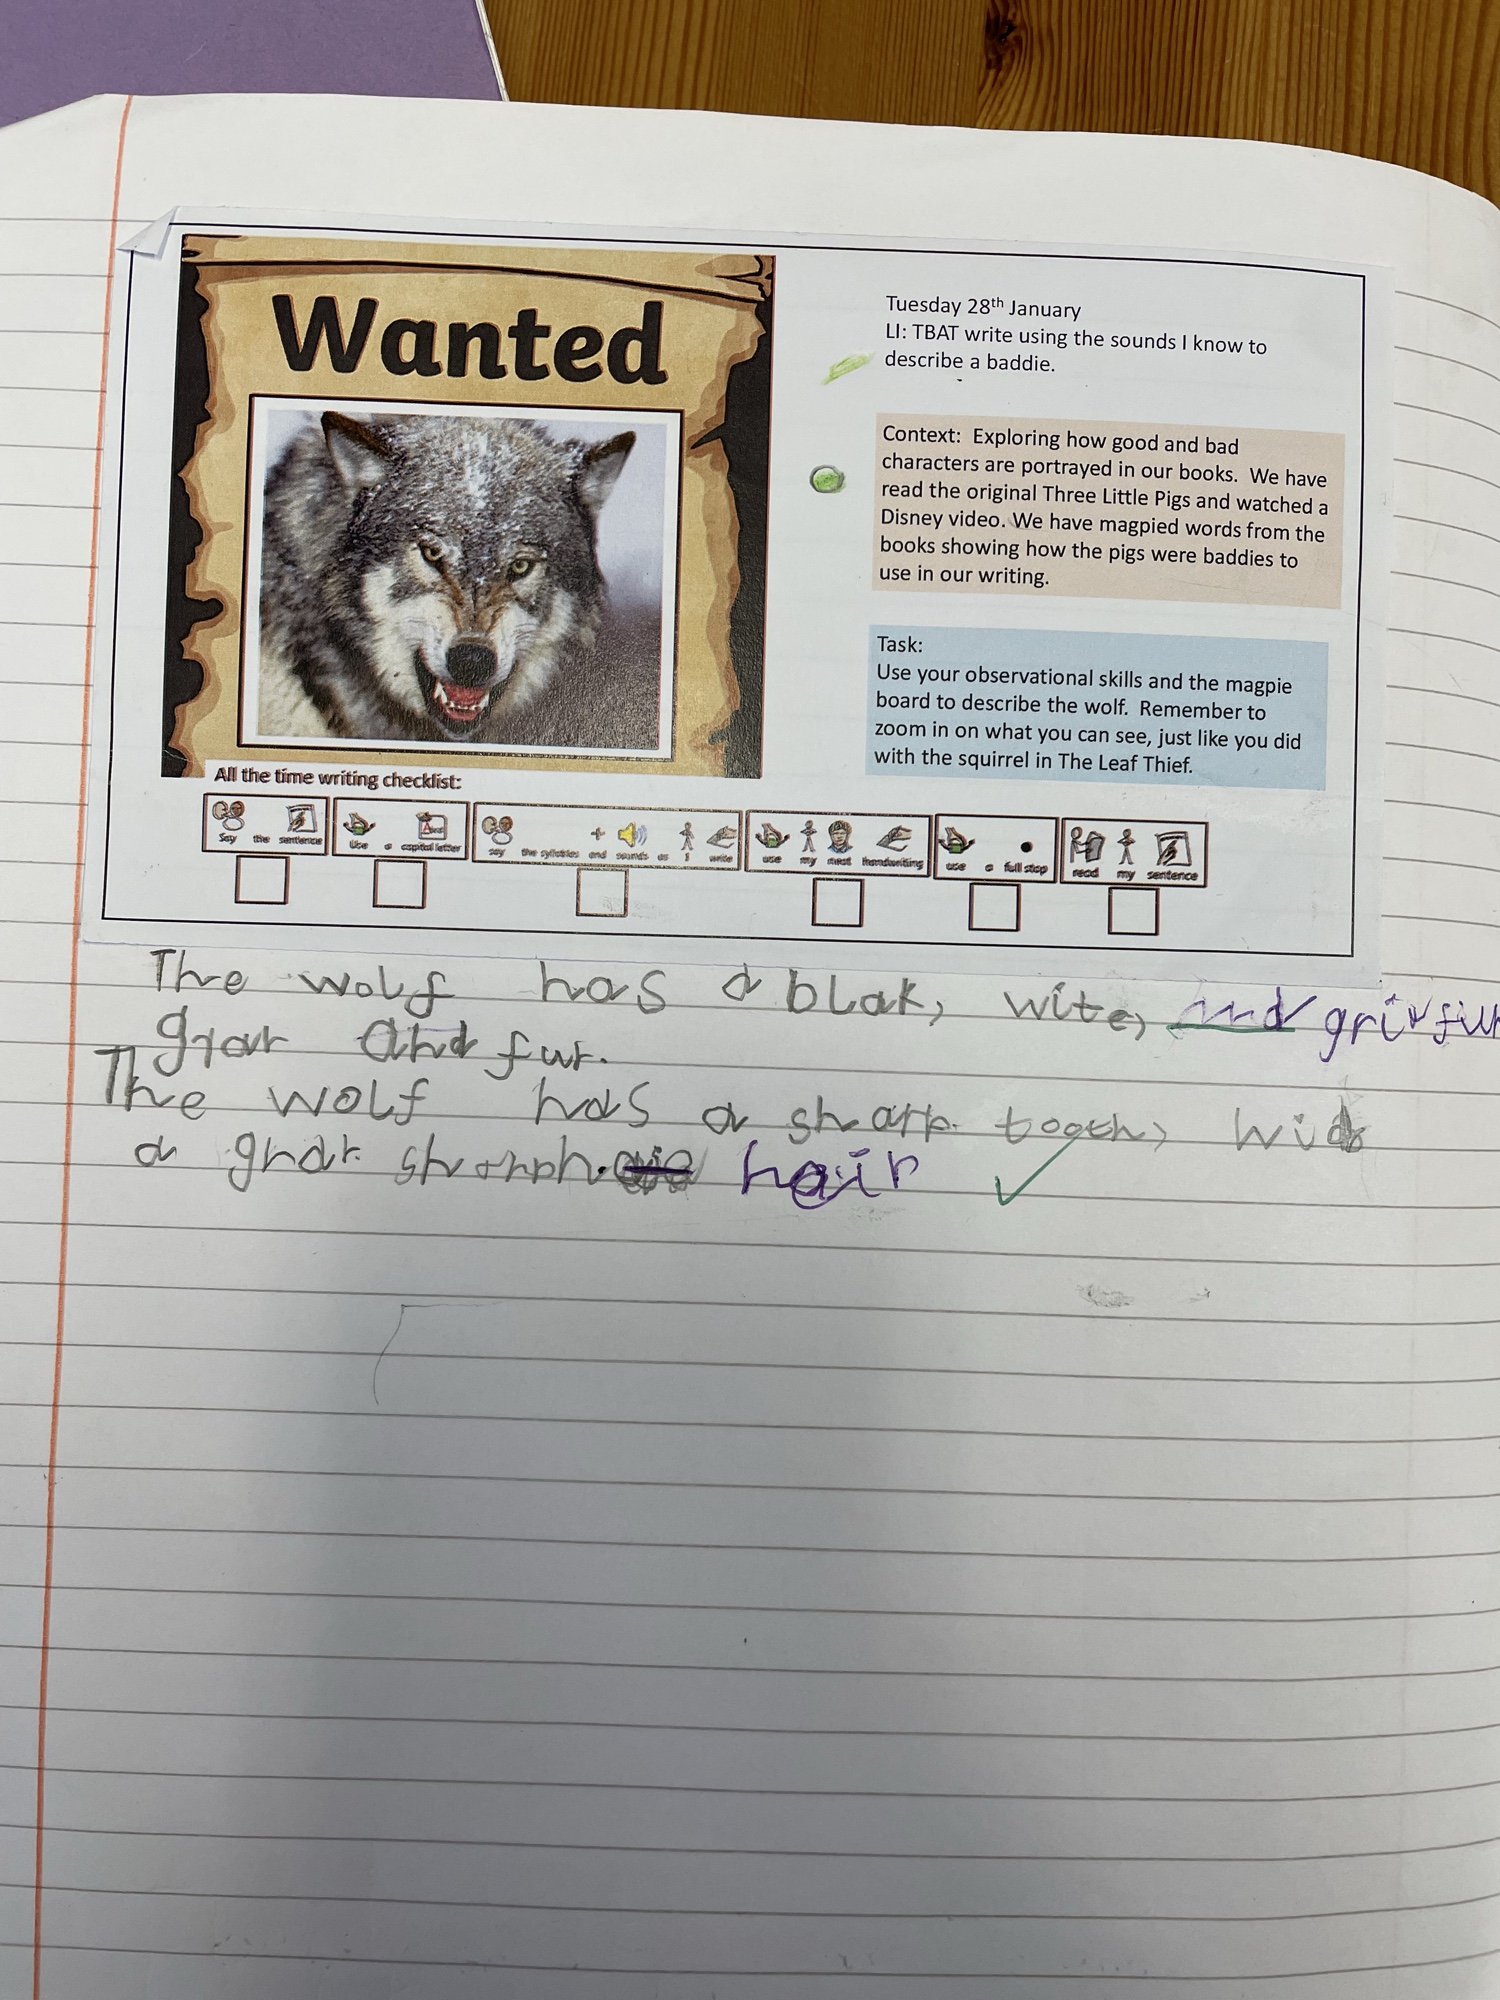 Wanted
Tuesday 28th January
LI: TBAT write using the sounds I know to
describe a baddie.
Context: Exploring how good and bad
characters are portrayed in our books. We have
read the original Three Little Pigs and watched a
Disney video. We have magpied words from the
books showing how the pigs were baddies to
use in our writing.
Task:
Use your observational skills and the magpie
board to describe the wolf. Remember to
zoom in on what you can see, just like you did
with the squirrel in The Leaf Thief.
All the time writing checklist:
Say the sentence
Use a capital letter
say the syllables and sounds as I write
use my neat handwriting
use a full stop
read my sentence
The wolf has a blak, wite, and fur
grar and fur.
The wolf has a sharp tooth,
a hair